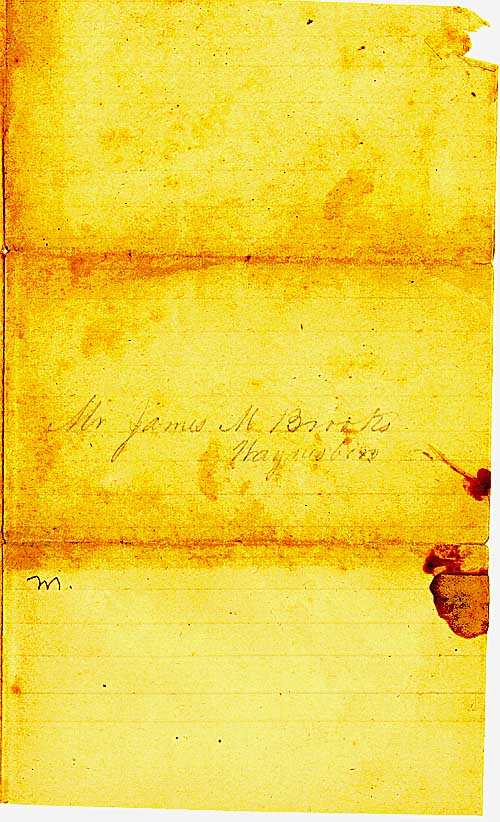 Mr James M Brooks
Waynesboro
m.